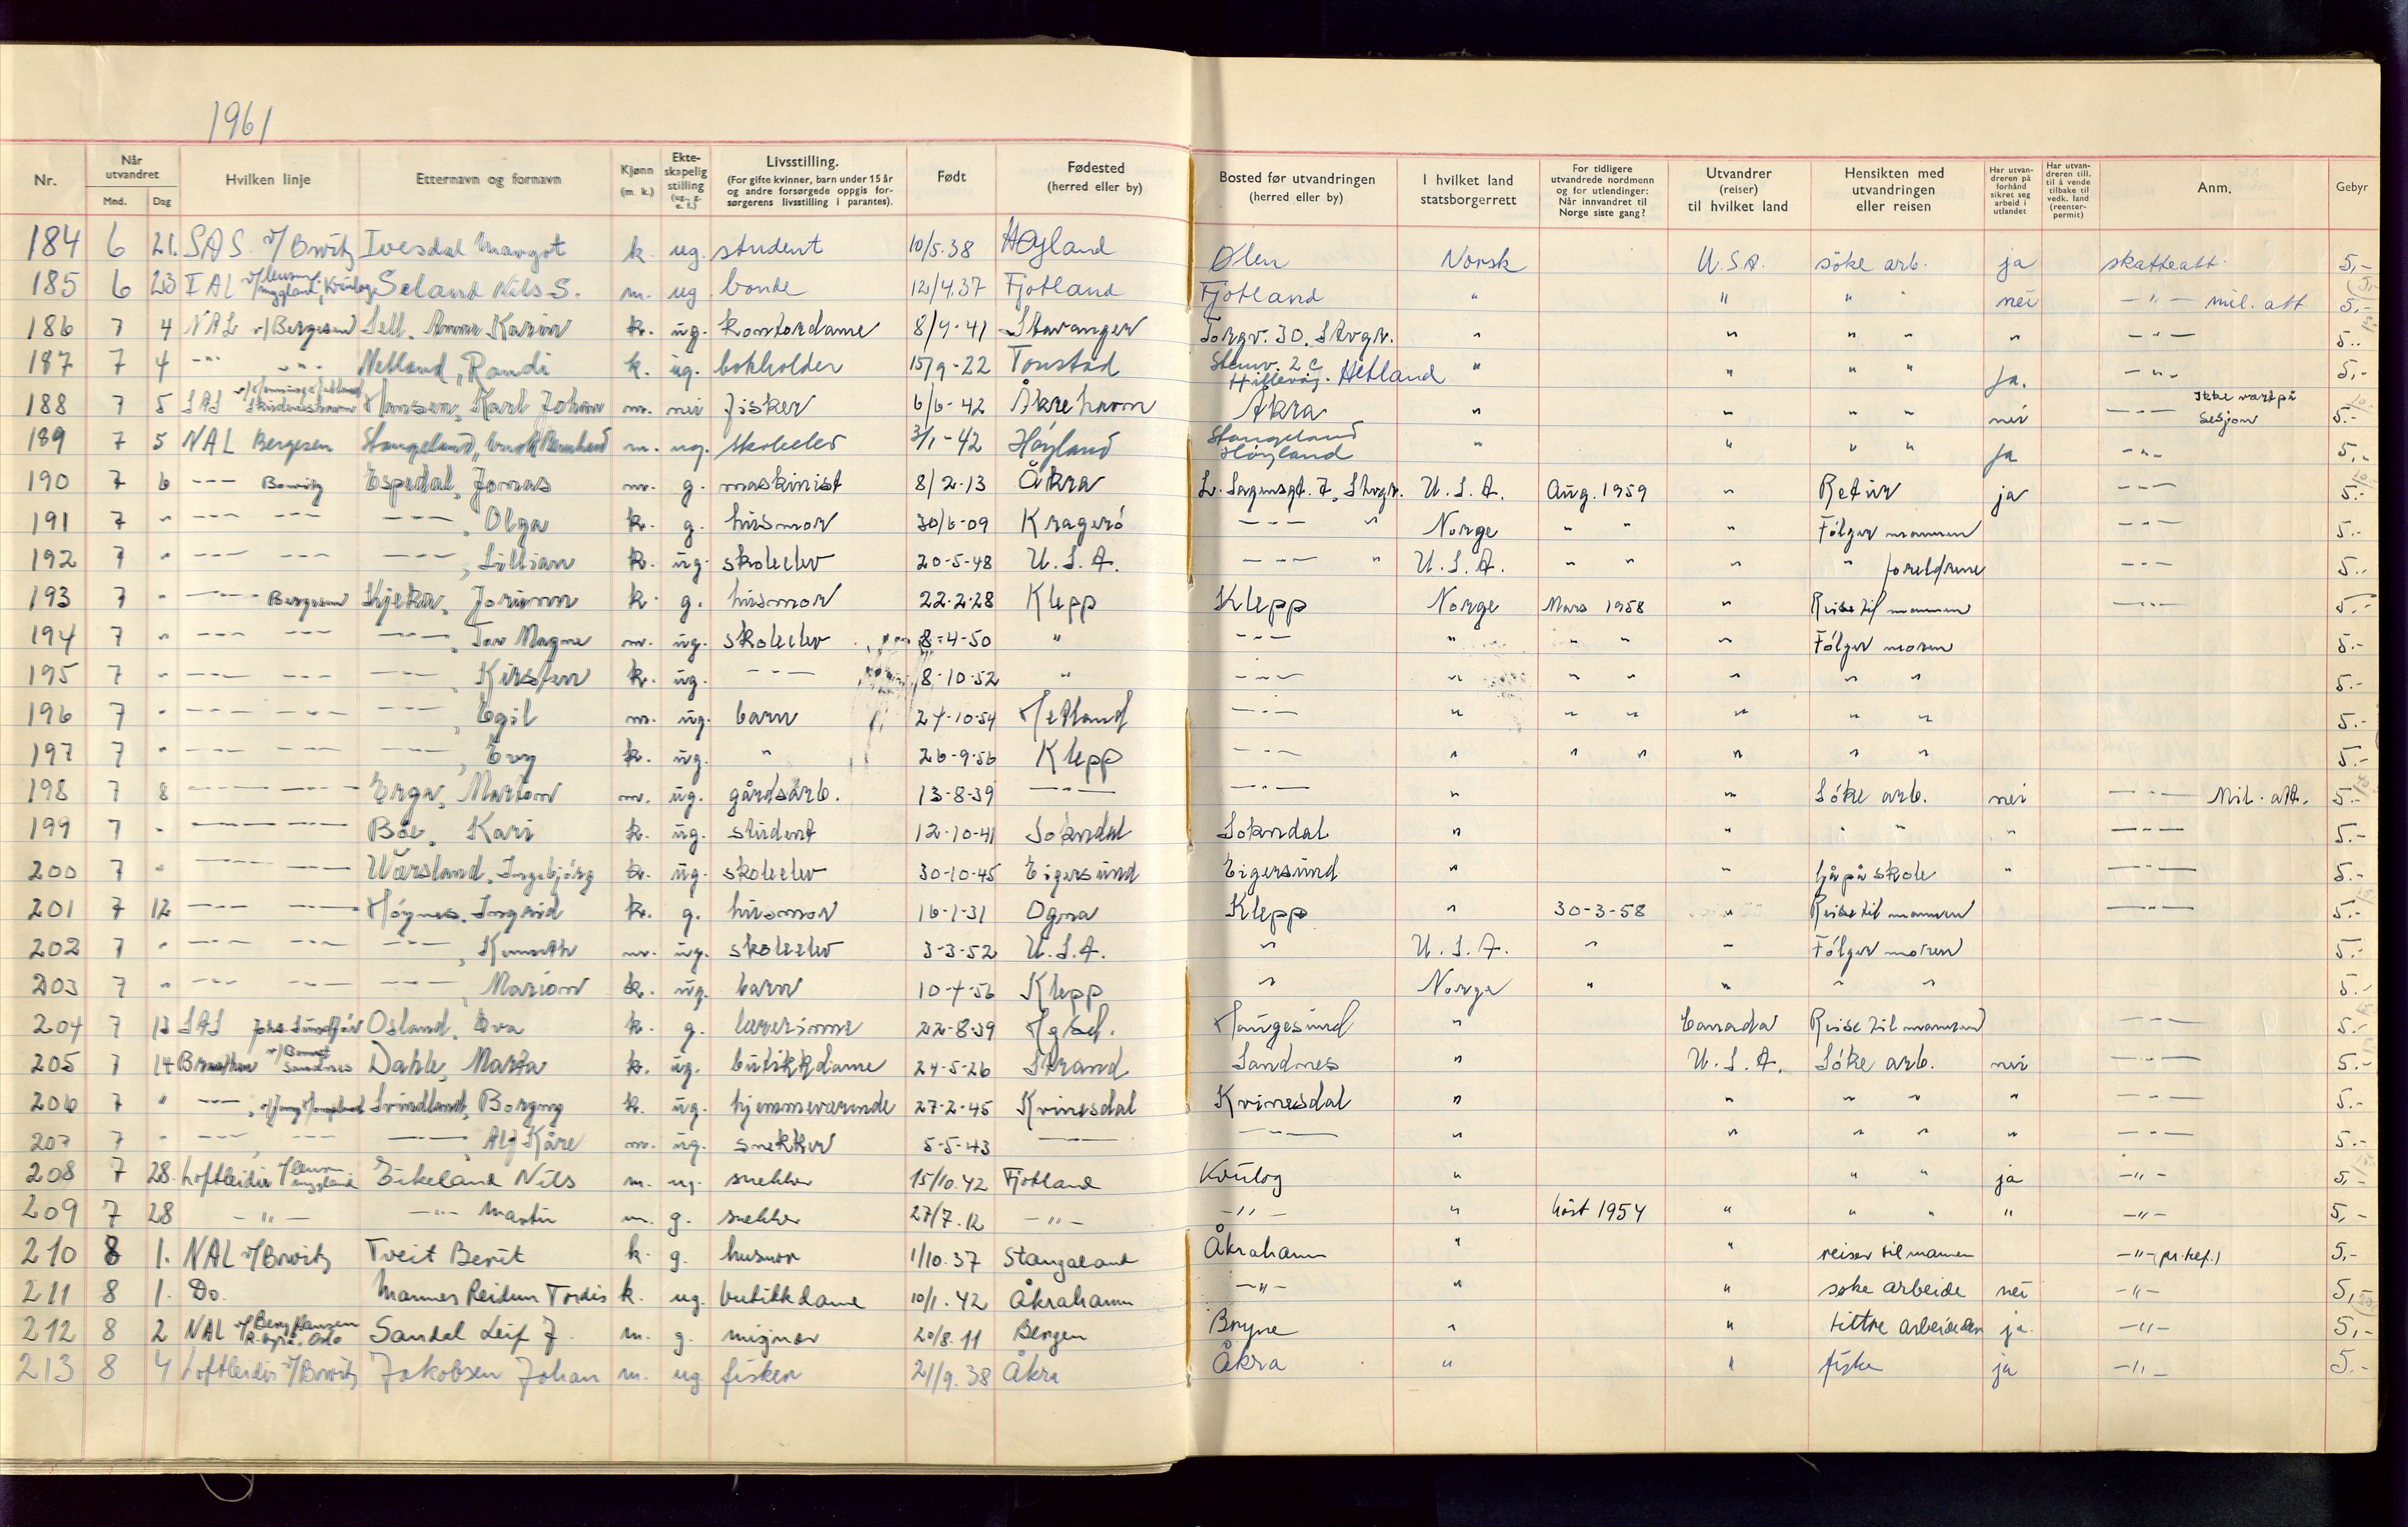 1961
Nr. Når utvandret Mnd. Dag Hvilken linje Etternavn og fornavn Kjønn (m. k.) Ekteskapelig stilling (ug., g. e. f.) Livsstilling. (For gifte kvinner, barn under 15 år og andre forsørgede oppgis forsørgerens livsstilling i parantes). Født Fødested (herred eller by) Bosted før utvandringen (herred eller by) I hvilket land statsborgerrett For tidligere utvandrede nordmenn og for utlendinger: Når innvandret til Norge siste gang? Utvandrer (reiser) til hvilket land Hensikten med utvandringen eller reisen Har utvandreren på forhånd sikret seg arbeid i utlandet Har utvandreren till. til å vende tilbake til vedk. land (reenterpermit) Anm. Gebyr
184 6 21. SAS. v/Bowitz Ivesdal Margot k. ug. student 10/5.38 Høyland Ølen Norsk U.S.A. söke arb. ja skatteatt. 5,-
185 6 23 IAL Seland Nils S. m. ug. bonde 12/4.37 Fjotland Fjotland " " " " nei -"- mil. att 5,-
186 7 4 NAL v/Bergesen Sell. Anne Karin k. ug. kontordame 8/4-41 Stavanger Torgv. 30. Stvgr. " " " " " -"- 5.-
187 7 4 -"- -"- Netland, Randi k. ug. bokholder 15/9-22 Tonstad Stemv. 2c Hillevåg. Hetland " " " " Ja. -"- 5,-
188 7 5 SAL Skudeneshavn Hansen, Karl Johan m. nei fisker 6/6-42 Åkrehamn Åkra " " " " nei -"- Ikke vært på sesjon 5.-
189 7 5 NAL Bergesen Stangeland, Bernhard m. ug. skoleelev 3/1-42 Höyland Stangeland Höyland " " " " Ja -"- 5,-
190 7 6 -"- Bowitz Espedal, Jonas m. g. maskinist 8/2-13 Åkra L. Sagensgt. 7, Stvgr. U.S.A. Aug. 1959 " Retur ja -"- 5.-
191 7 " -"- -"- -"-, Olga k. g. husmor 30/6-09 Kragerö -"- " Norge " " " Fölger mannen -"- 5.-
192 7 " -"- -"- -"-, Lillian k. ug. skoleelev 20-5-48 U.S.A. -"- " U.S.A. " " " " foreldrene -"- 5.-
193 7 " -"- Bergesen Kjeka, Jorunn k. g. husmor 22-2-28 Klepp Klepp Norge Mars 1958 " Reise til mannen -"- 5.-
194 7 " -"- -"- -"-, Tor Magne m. ug. skoleelev 8-4-50 " -"- " " " " Fölger moren 5.-
195 7 " -"- -"- -"-, Kirsten k. ug. -"- 8-10-52 " -"- " " " " " " 5.-
196 7 " -"- -"- -"-, Egil m. ug. barn 24-10-54 Hetland -"- " " " " " " 5.-
197 7 " -"- -"- -"-, Evy k. ug. " 26-9-56 Klepp -"- " " " " " " 5.-
198 7 8 -"- -"- Erga, Marton m. ug. gårdsarb. 13-8-39 -"- -"- " " Söke arb. nei -"- Mil. att. 5.-
199 7 " -"- -"- Böe, Kari k. ug. student 12-10-41 Sokndal Sokndal " " " " " -"- 5.-
200 7 " -"- -"- Wårsland, Ingebjörg k. ug. skoleelev 30-10-45 Eigersund Eigersund " " Gå på skole " -"- 5.-
201 7 12 -"- -"- Höynes, Ingrid k. g. husmor 16-1-31 Ogna Klepp " 30-3-58 " Reise til mannen -"- 5.-
202 7 " -"- -"- -"-, Kenneth m. ug. skoleelev 3-3-52 U.S.A. " U.S.A. " " Fölger moren 5.-
203 7 " -"- -"- -"-, Marion k. ug. barn 10-4-56 Klepp " Norge " " " " 5.-
204 7 13 SAS Osland, Eva k. g. lærerinne 22-8-39 Hgsd. Haugesund " Canada Reise til mannen -"- 5.-
205 7 14 Braathen Sandnes Dahle, Marta k. ug. butikkdame 24-5-26 Strand Sandnes " U.S.A. Söke arb. nei -"- 5.-
206 7 " -"- Svindland, Borgny k. ug. hjemmeværende 27-2-45 Kvinesdal Kvinesdal " " " " " -"- 5.-
207 7 " -"- -"- -"-, Alf Kåre m. ug. snekker 5-5-43 -"- -"- " " " " " -"- 5.-
208 7 28. Loftleidir Eikeland Nils m. ug. snekker 15/10.42 Fjotland Kvinlog " " " ja -"- 5,-
209 7 28 -"- -"- Martin m. g. snekker 27/7.12 -"- -"- " höst 1954 " " " " -"- 5,-
210 8 1. NAL v/Bowitz Tveit Berit k. g. husmor 1/10.37 Stangaland Åkrahamn " " reiser til mannen -"- (pr. tlf.) 5,-
211 8 1. Do. Mannes Reidun Tordis k. ug. butikkdame 10/1.42 Åkrahamn -"- " " söke arbeide nei -"- 5,-
212 8 2 NAL v/Berg Hansen R.byrå, Oslo Sandal Leif J. m. g. 20/8.11 Bergen Bryne " " tiltre arbeide der ja. -"- 5,-
213 8 4 Loftleidir v/Bowitz Jakobsen Johan m. ug fisker 21/9.38 Åkra Åkra " " fiske ja -"- 5.-